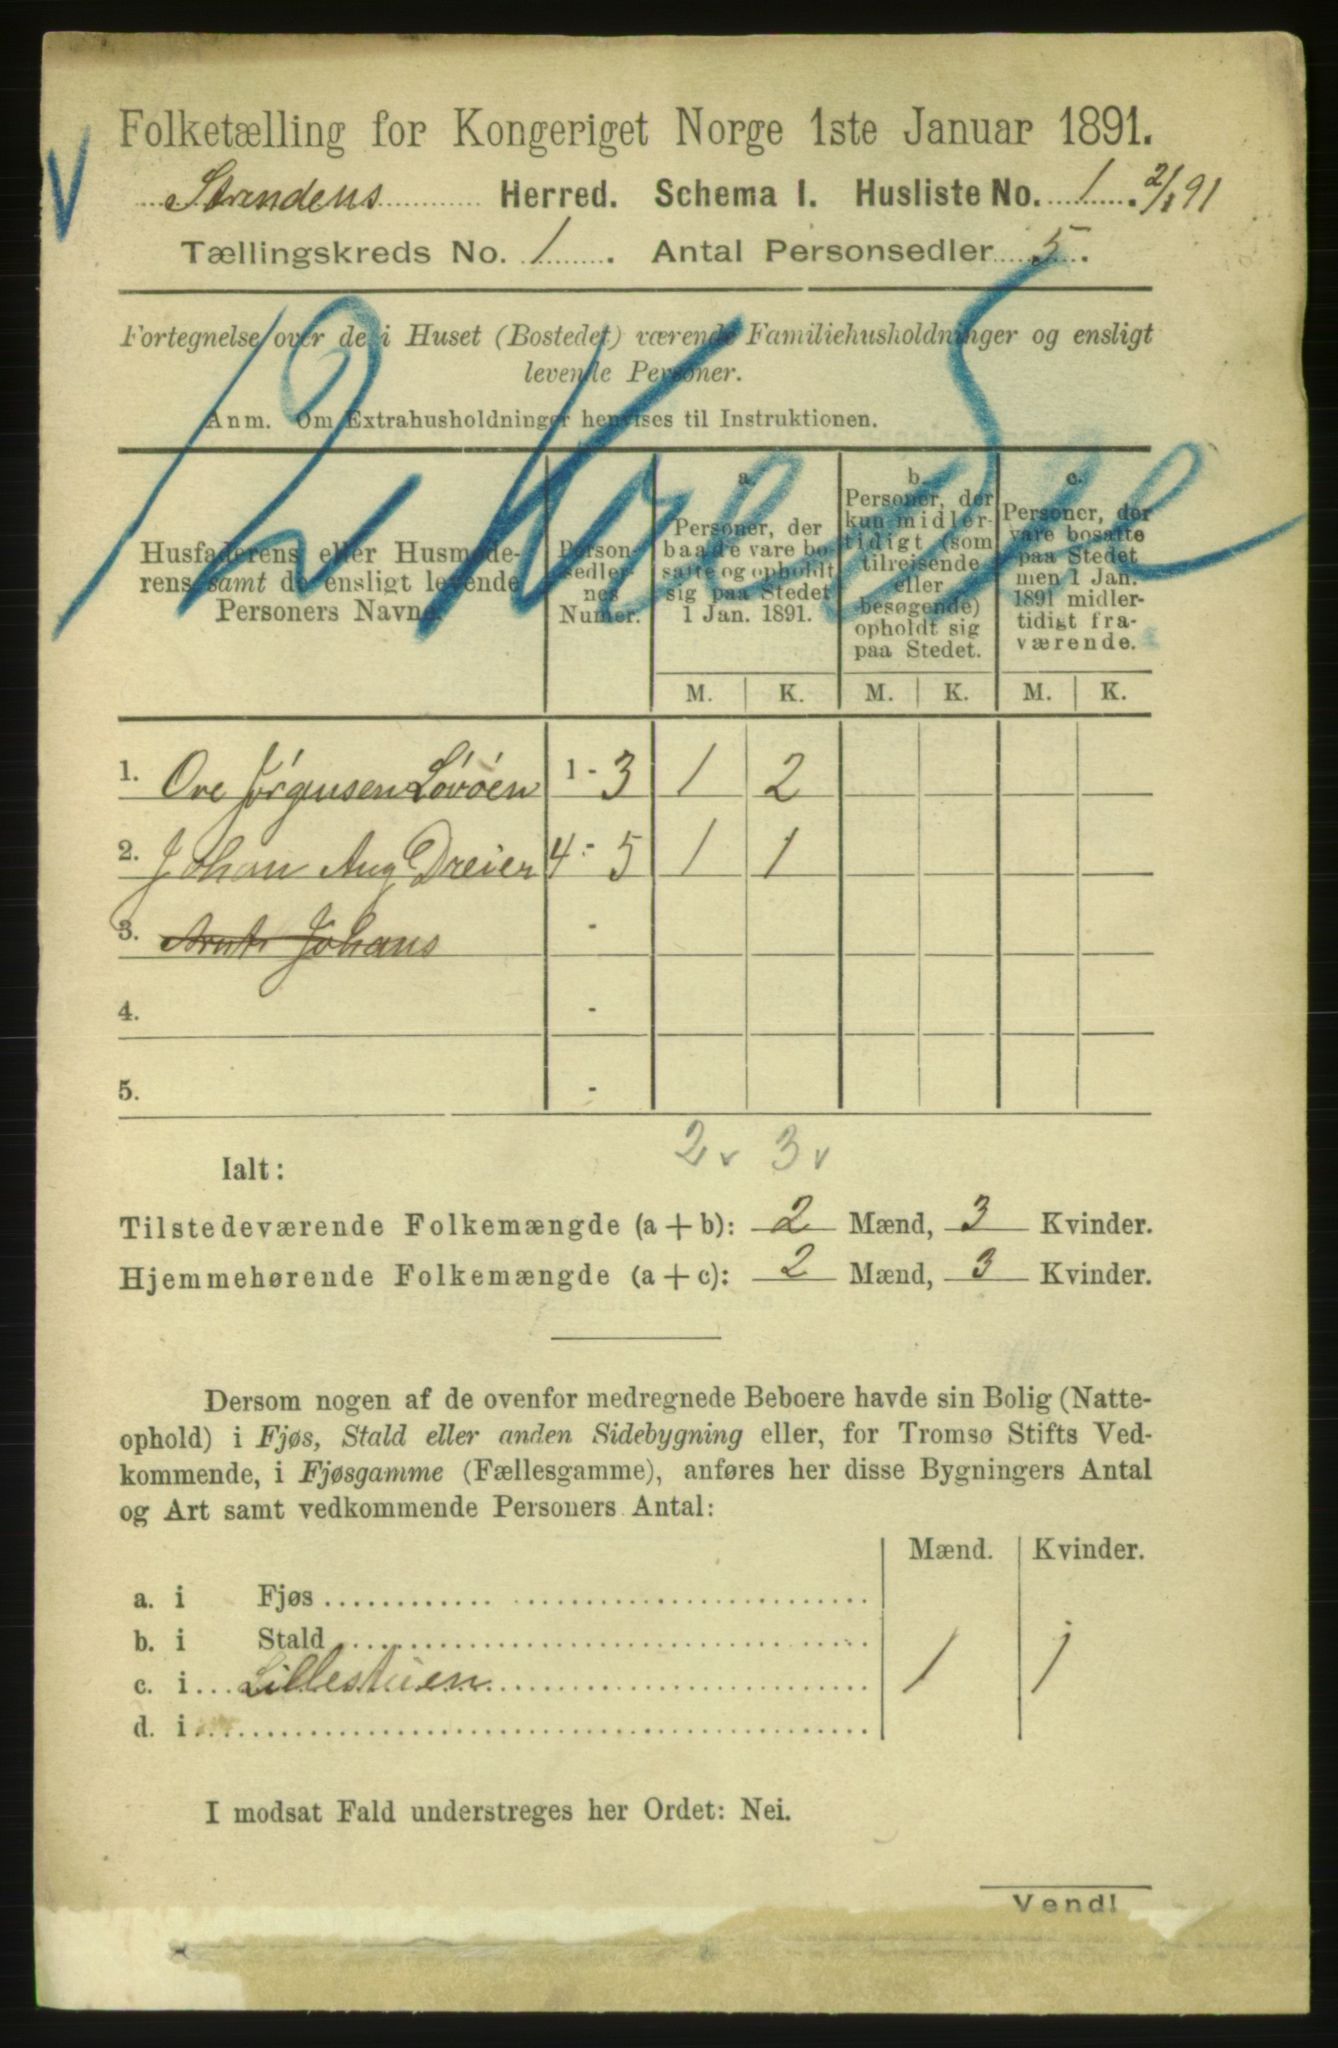 Folketælling for Kongeriget Norge 1ste Januar 1891.
Strindens Herred. Schema I. Husliste No. 1. 2/1 91
Tællingskreds No. 1. Antal Personsedler 5.
Fortegnelse over de i Huset (Bostedet) værende Familiehusholdninger og ensligt
levende Personer.
Anm. Om Extrahusholdninger henvises til Instruktionen.
Husfaderens eller Husmode-
rens samt de ensligt levende
Personers Navne.
Person-
sedler-
nes
Numer.
a.
Personer, der
baade vare bo-
satte og opholdt
sig paa Stedet
1 Jan. 1891.
b.
Personer, der
kun midler-
tidigt (som
tilreisende
eller
besøgende)
opholdt sig
paa Stedet.
c.
Personer, der
vare bosatte
paa Stedet
men 1 Jan.
1891 midler-
tidigt fra-
værende.
M. K. M. K. M. K.
1. Ove Jørgensen Løvøen 1 - 3 1 2
2. Johan Aug Dreier 4 - 5 1 1
3. Johans -
4. -
5. -
2 v 3 v
Ialt:
Tilstedeværende Folkemængde (a + b): 2 Mænd, 3 Kvinder.
Hjemmehørende Folkemængde (a + c): 2 Mænd, 3 Kvinder.
Dersom nogen af de ovenfor medregnede Beboere havde sin Bolig (Natte-
ophold) i Fjøs, Stald eller anden Sidebygning eller, for Tromsø Stifts Ved-
kommende, i Fjøsgamme (Fællesgamme), anføres her disse Bygningers Antal
og Art samt vedkommende Personers Antal:
Mænd. Kvinder.
a. i Fjøs
b. i Stald
c. i Lillestuen 1 1
d. i
I modsat Fald understreges her Ordet: Nei.
Vend!